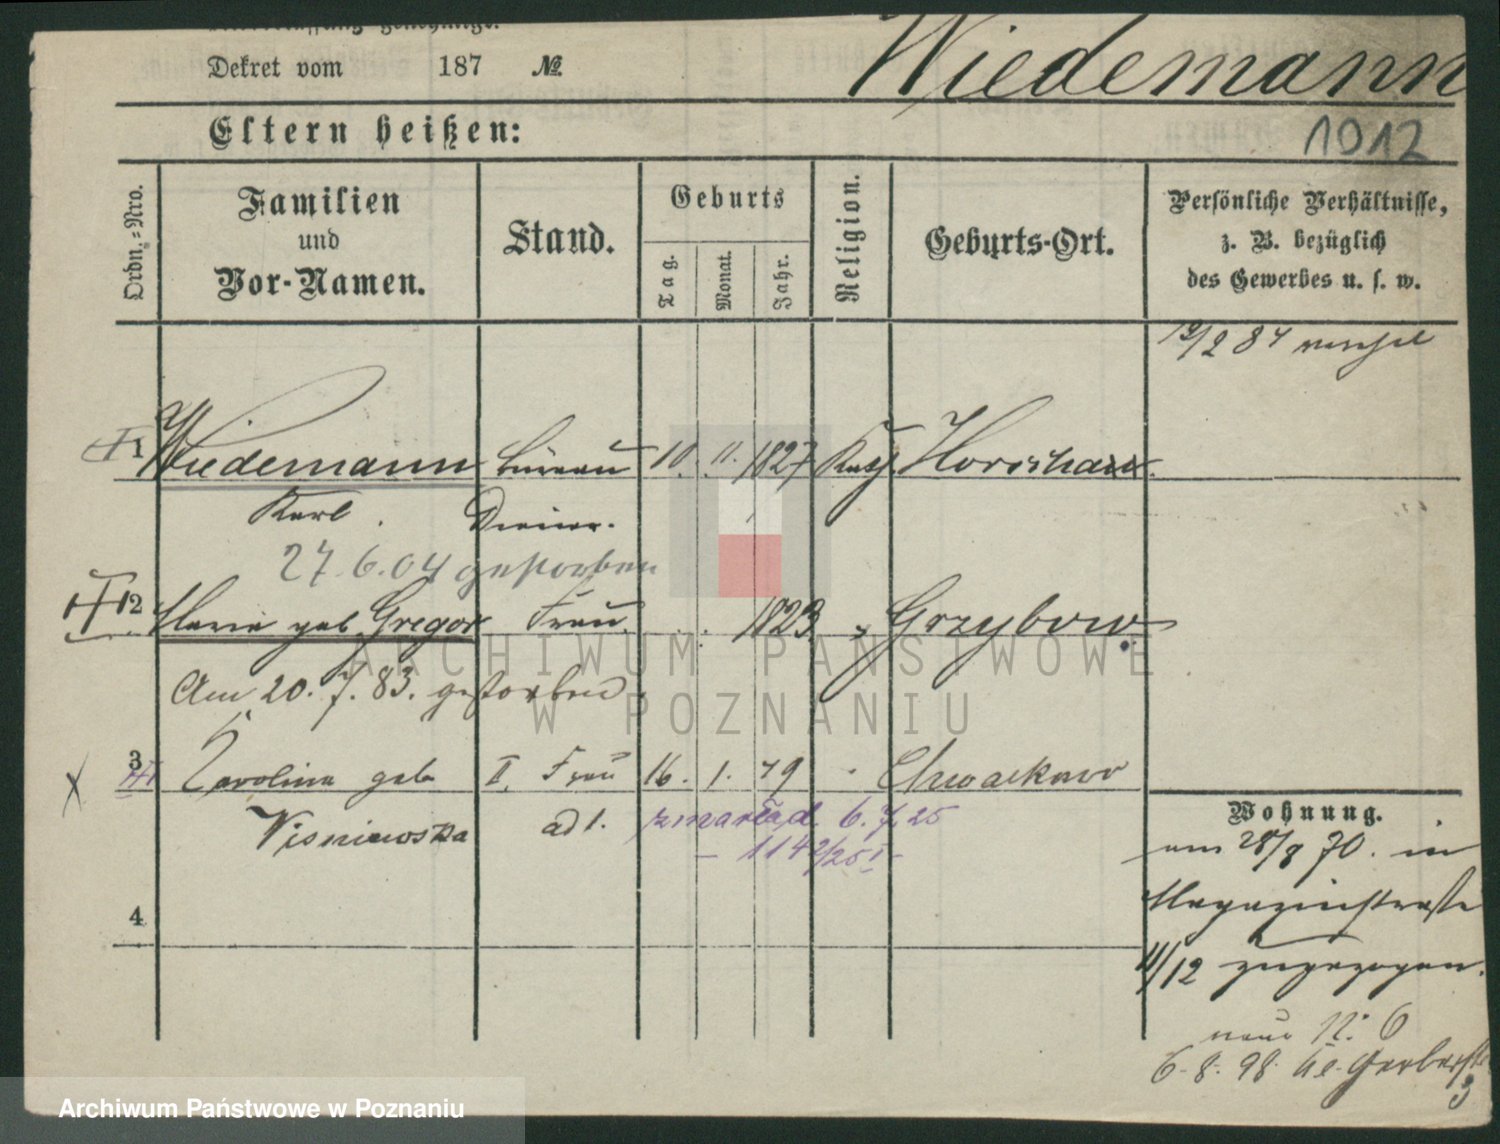 Dekret vom 187 №
Wiedemann
Eltern heißen:
1012
Ordn.-Nro.
Familien
und
Vor-Namen.
Stand.
Geburts
Tag.
Monat.
Jahr.
Religion.
Geburts-Ort.
Persönliche Verhältnisse,
z. B. bezüglich
des Gewerbes u. s. w.
12/2 84
1 Wiedemann Büreau 10. 11. 1827 Kath
Karl. Diener.
27.6.04 gestorben
2 Marie geb Gregor Frau 1823 " Grzybowo
Am 20.7.83. gestorben
3 Karolina geb II. Frau 16. 1. 79
Wisniewska ad 1. zmarła d. 6.7.25
4
Wohnung.
am 28/8 70. in
Magazinstraße
11/12 zugezogen.
neue N: 6
6.8.98 Kl. Gerberstr
3
ARCHIWUM PAŃSTWOWE
W POZNANIU
Archiwum Państwowe w Poznaniu